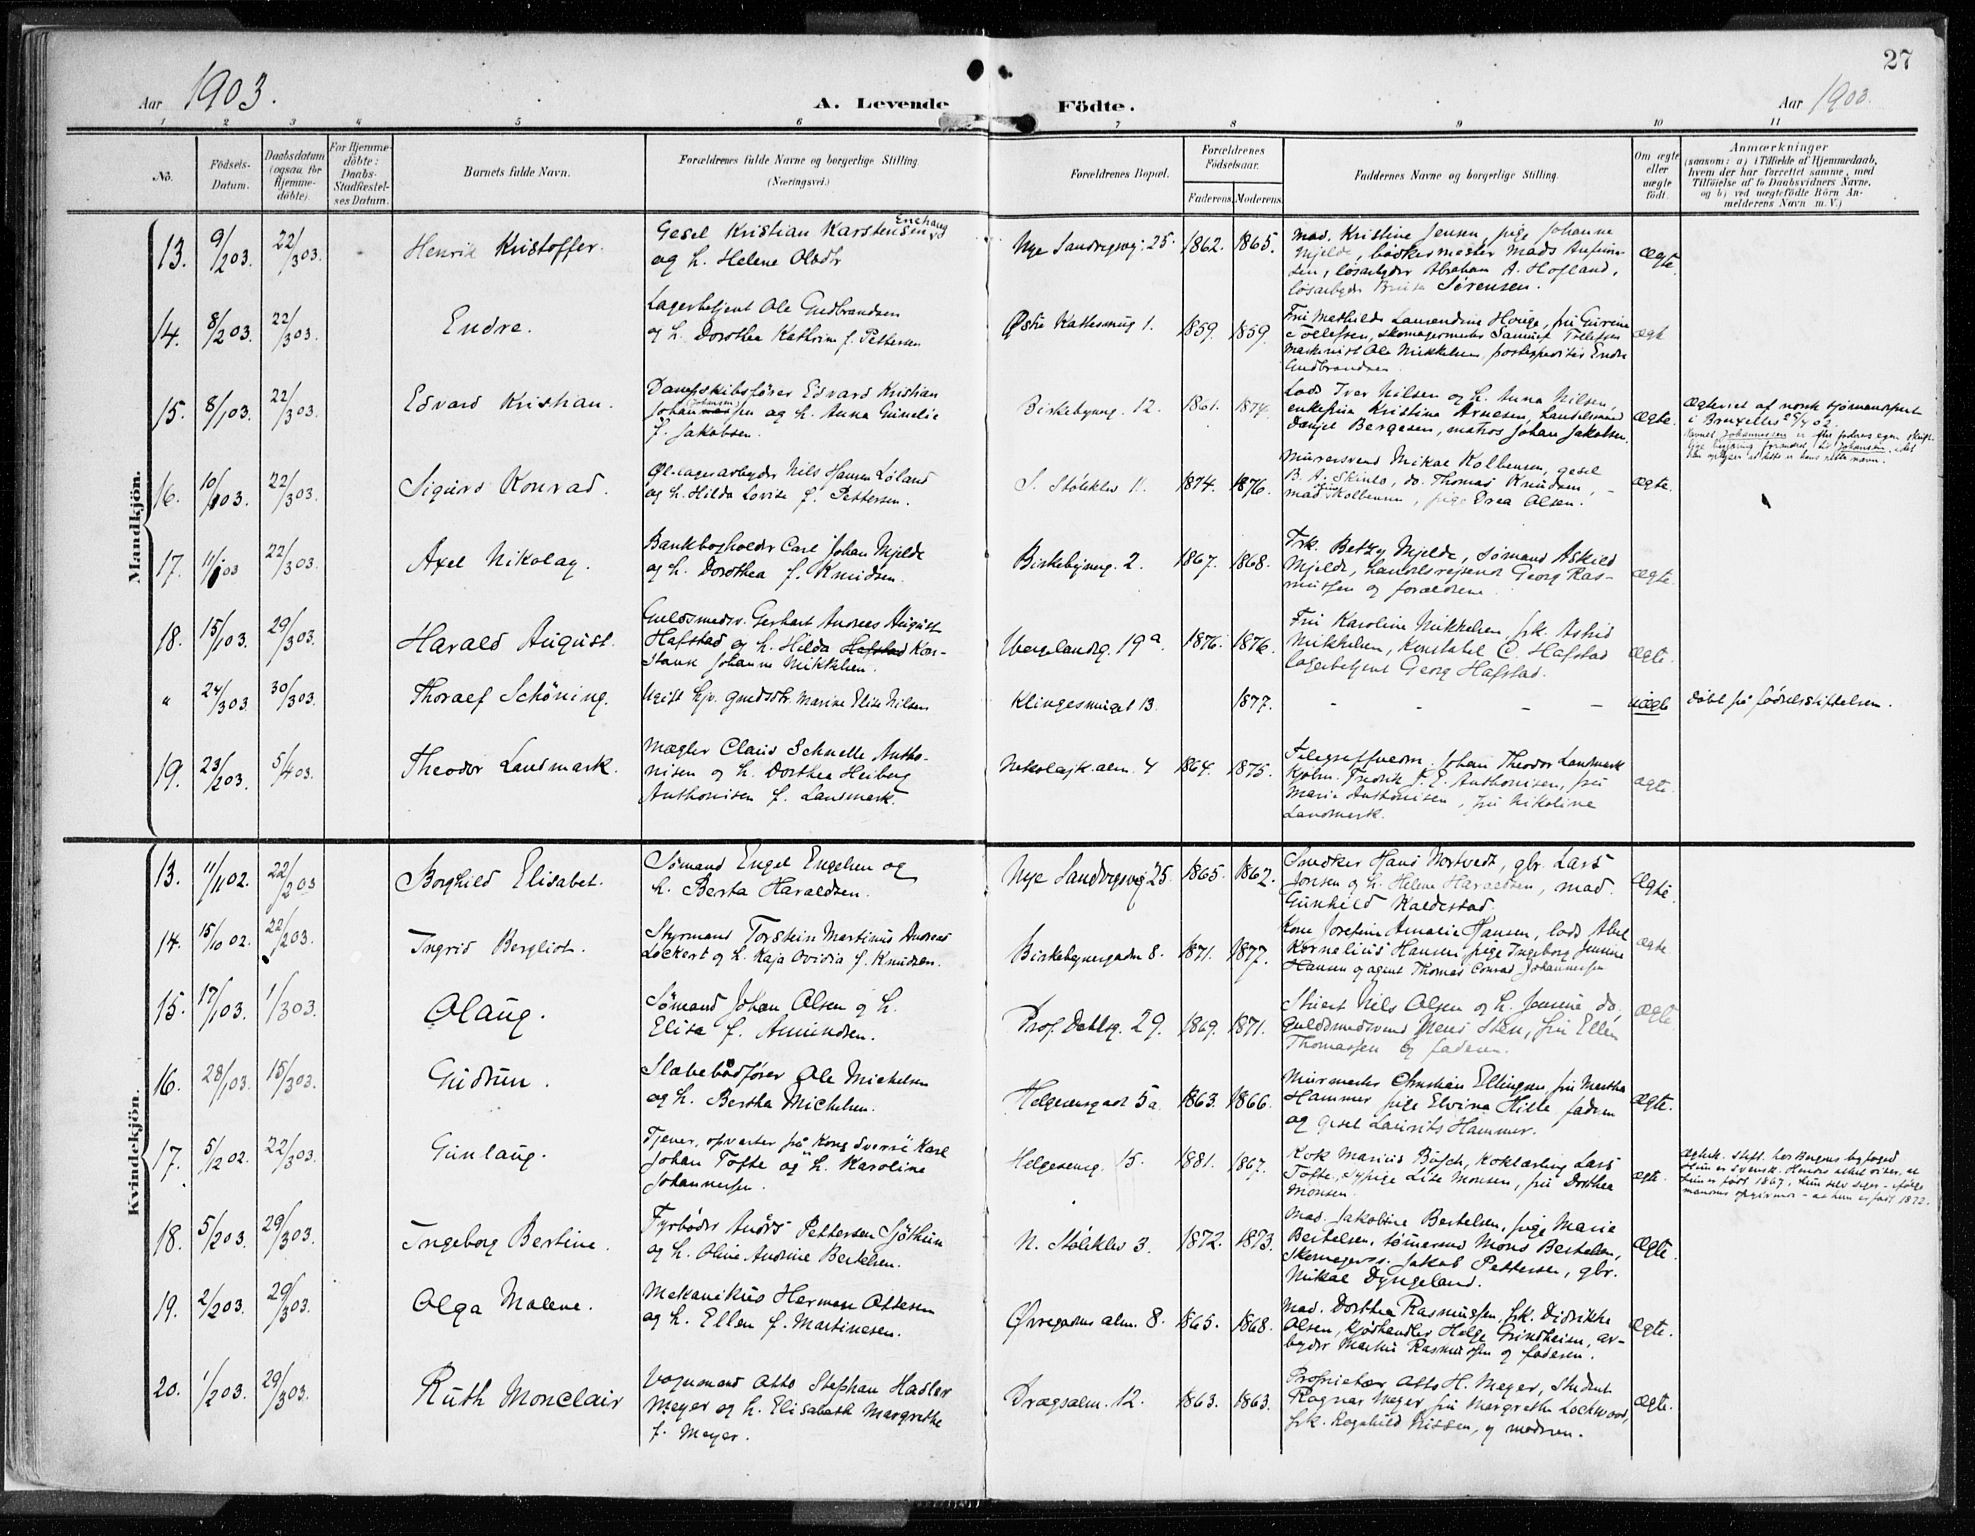 27
Aar 1903.
A. Levende
Födte.
Aar 1903.
1 2 3 4 5 6 7 8 9 10 11
No.
Födsels-Datum.
Daabsdatum (ogsaa for Hjemme-döbte).
For Hjemme-döbte: Daabs-Stadfæstel-ses Datum.
Barnets fulde Navn.
Forældrenes fulde Navne og borgerlige Stilling.
(Næringsvei.)
Forældrenes Bopæl.
Forældrenes Födselsaar.
Faderens Moderens
Faddernes Navne og borgerlige Stilling.
Om ægte eller uægte födt.
Anmærkninger
(saasom: a) i Tilfælde af Hjemmedaab,
hvem der har forrettet samme, med
Tilföielse af to Daabsvidners Navne,
og b) ved uægtefödte Börn An-
melderens Navn m. V.)
Mandkjön.
13. 9/2 03. 22/3 03. Henrik Kristoffer.
Gesel Kristian Karstensen Enehaug
og h. Helene Olsdtr
Nye Sandvigsvei 25. 1862. 1865.
Mad. Kristine Jensen, pige Johanne
Mjelde, bödkermester Mads
løsarbeider Abraham A. Hofland,
løsarbeider Sörensen.
Ægte.
14. 8/2 03. 22/3 03. Endre.
Lagerbetjent Ole Gudbrandsen
og h. Dorothea Kathrine f. Pettersen
Østre Kattesmug 1. 1859. 1859.
Fru Mathilde Laurendine Hovge, fru Gurine
Tollefsen, skomagermester Samuel Tollefsen
Maskinist Ole Mikkelsen, postexpeditör Endre
Gudbrandsen.
Ægte
15. 8/1 03. 22/3 03. Edvard Kristian.
Dampskibsförer Edvard Kristian
Johannessen (Johansen) og h. Anna Gurelie
f. Jakobsen.
Birkebeynerg. 12. 1861. 1874.
Lods Iver Nilsen og h. Anna Nilsen,
enkefrue Kristine Arnesen, Landelsmand
Danjel Bergesen, matros Johan Jakobsen.
Ægte.
Ægteviet af norsk sjömandsprest
i Bruxelles 25/4 02.
Navnet Johannessen er efter faderens egen skrift-
lige begjæring forandret til Johansen, idet
han oplyser at dette er hans rette navn.
16. 10/1 03. 22/3 03. Sigurd Konrad.
Øl-lagerarbeyder Nils Hansen Löland
og h. Hilda Lovise f. Pettersen.
S. Stöleklev 11. 1874. 1876.
Murersvend Mikal Kolbensen, gesel
B. A. Skinlo, do. Thomas Knudsen,
mad. Kolbensen, pige Drea Olsen.
Ægte.
17. 11/1 03 22/3 03. Axel Nikolay.
Bankbogholder Carl Johan Mjelde
og h. Dorothea f. Knudsen.
Birkebeynerg. 2. 1867. 1868.
Frk. Betzy Mjelde, Sömand Askild
Mjelde, handelsrejsende Georg Ras-
mussen og forældrene.
Ægte.
18. 15/1 03. 29/3 03. Harald August.
Guldsmedsv. Gerhart Andreas August
Hafstad og h. Hilda Hafstad Kon-
stance Johanne Mikkelsen.
Wergelandsg. 19a 1876. 1876.
Fru Karoline Mikkelsen, frk. Astrid
Mikkelsen, Konstabel C. Hafstad
Lagerbetjent Georg Hafstad.
Ægte.
" 24/3 03. 30/3 03. Thoralf Schöning.
Ugift hjv. Marine Elise Nilsen
Klingesmuget 13. 1877. - - - -
uægte Döbt på födselsstiftelsen.
19. 23/2 03. 5/4 03. Theodor Landmark.
Mægler Claus Schnelle Antho-
nisen og h. Dorthea Heiberg
Anthonisen f. Landmark.
Nikolajk.alm. 4 1864. 1875.
Johan Theodor Landmark
Kjöbm. Fredrik J. E. Anthonisen, fru
Marie Anthonisen, fru Nikoline
Landmark.
Ægte.
Kvindekjön.
13. 11/11 02. 22/2 03 Borghild Elisabet.
Sömand Engel Engelsen og
h. Berta Haraldsen.
Nye Sandvigsvei 25. 1865. 1862.
Snedker Hans Nortvedt, gbr. Lars
Jonsen og h. Helene Haraldsen, mad.
Gunhild Kaldestad.
Ægte.
14. 15/10 02. 22/2 03. Ingrid Bergliot.
Styrmand Torstein Martinus Andreas
Lockert og h. Kaja Ovidia f. Knudsen.
Birkebeynergaden 8. 1871. 1877.
Kone Josefine Amalie Hansen, lods Abel
Kornelius Hansen pige Ingeborg Jensine
Hansen og agent Thomas Conrad Johannessen
Ægte.
15. 17/1 03. 1/3 03. Olaug.
Sömand Johan Olsen og h.
Elisa f. Amundsen.
Prof. Dahlsg. 29. 1869. 1871.
Stuert Nils Olsen og h. Jensine do,
guldsmedsvend Mons Steen, fru Ellen
Thomassen og faderen.
Ægte
16. 28/1 03. 15/3 03. Gudrun.
Slæbebådförer Ole Michelsen
og h. Bertha Michelsen.
Helgesensgade 5a. 1863. 1866.
Murmester Christian Ellingsen, fru Martha
Hammer pige Elvina Hille, faderen
og gesel Laurits Hammer.
Ægte.
17. 5/12 02. 22/3 03. Gunlaug.
Tjener, opvarter på Kong Sverre Karl
Johan Tofte og h. Karoline
Johannessen.
Helgesensg. 15. 1881. 1867.
Kok Marius Busch, Koklærling Lars
Tofte, sypige Lise Monsen, fru Dorthea
Monsen.
Ægte.
Ægtesk. stift. hos Bergens byfoged.
Hun er svensk. Hendes attest viser, at
hun er födt 1867, hun selv siger - ifölge
mandens opgivende - at hun er födt 1872.
18. 5/2 03. 29/3 03. Ingeborg Bertine.
Fyrböder Anders Pettersen Sjöthun
og h. Oline Andrine Bertelsen.
N. Stöleklev 3. 1872. 1873.
Mad. Jakobine Bertelsen, pige Marie
Bertelsen, tömmermand Mons Bertelsen,
skomagersv. Jakob Pettersen, gbr.
Mikal Dyngeland.
Ægte.
19. 2/2 03. 29/3 03. Olga Malene.
Mekanikus Herman Ottesen
og h. Ellen f. Martinesen.
Øvregadens alm. 8. 1865. 1868.
Mad. Dorthea Rasmussen, frk. Didrikke
Olsen, kjödhandler Helge Grindheim, ar-
beyder Martin Rasmussen og faderen.
Ægte.
20. 1/2 03. 29/3 03. Ruth Monclair
Vognmand Otto Stephan Hadler
Meyer og h. Elisabeth Margrethe
f. Meyer.
Dragsalm. 12. 1863. 1863.
Proprietær Otto H. Meyer, student
Ragnar Meyer fru Margrethe Lockwood,
frk. Ragnhild Nissen, og moderen.
Ægte.